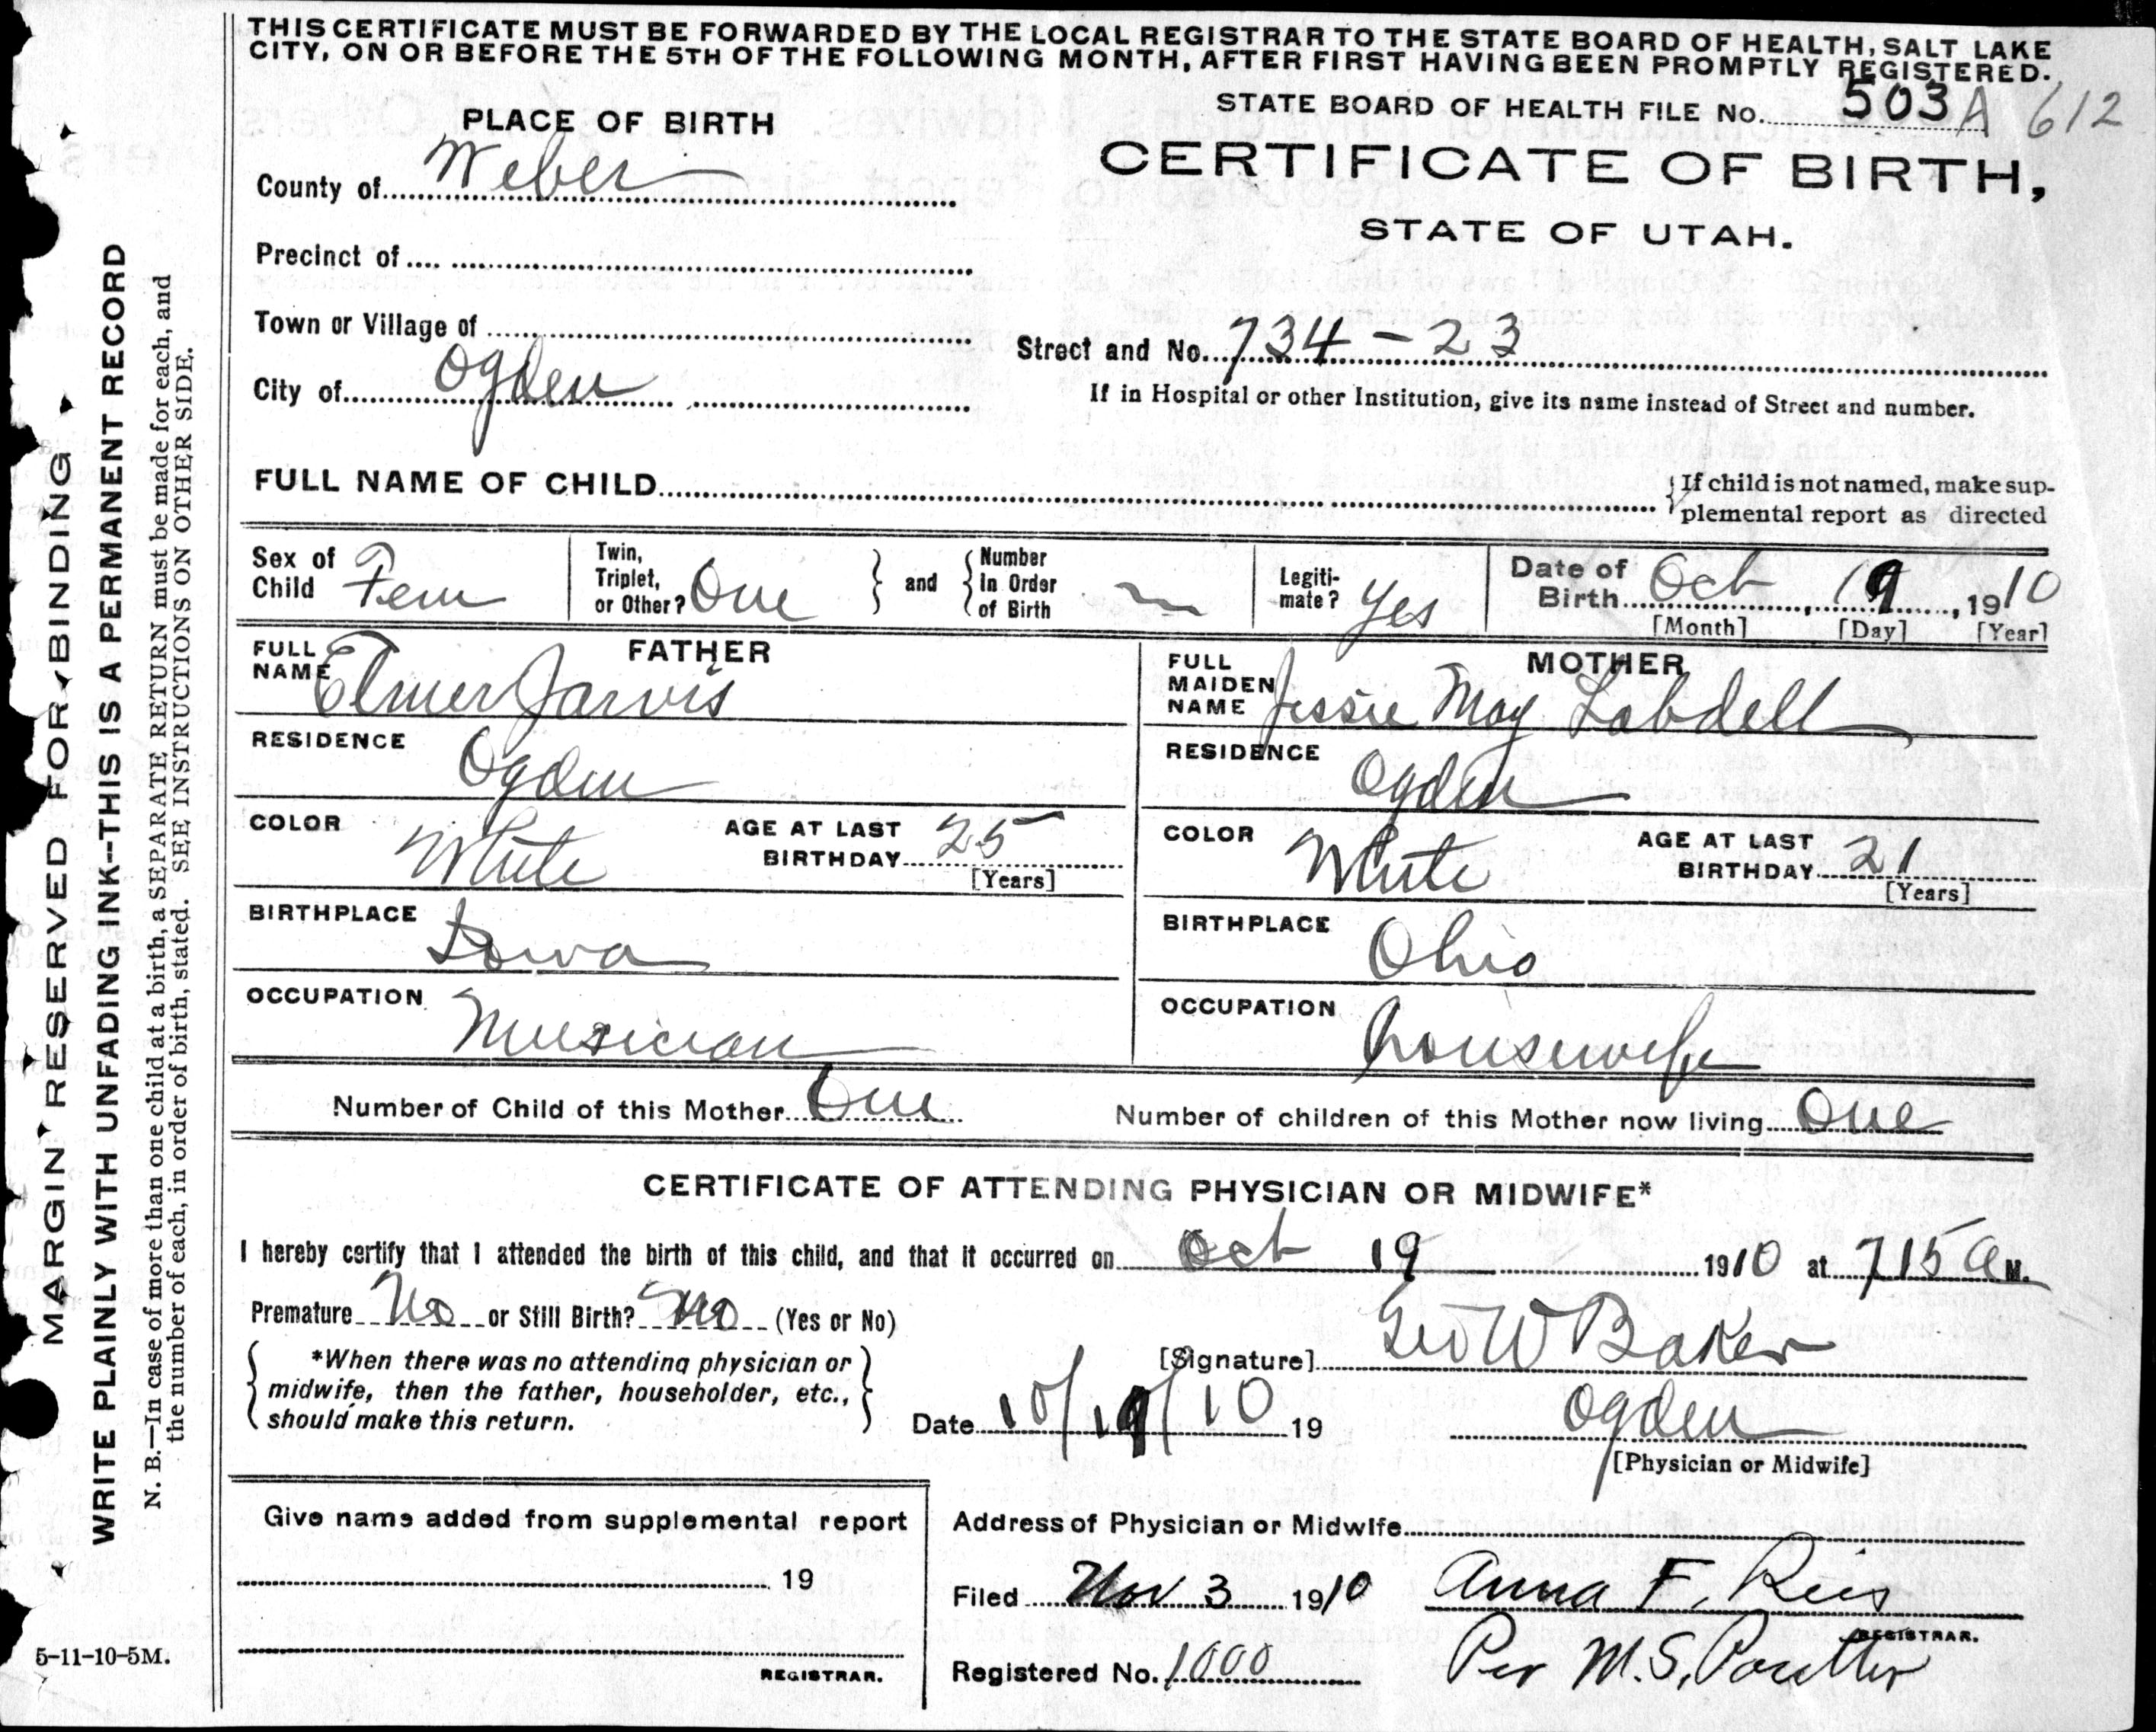 THIS CERTIFICATE MUST BE FORWARDED BY THE LOCAL REGISTRAR TO THE STATE BOARD OF HEALTH, SALT LAKE
CITY, ON OR BEFORE THE 5TH OF THE FOLLOWING MONTH, AFTER FIRST HAVING BEEN PROMPTLY REGISTERED.
STATE BOARD OF HEALTH FILE No. 503A 612
PLACE OF BIRTH
CERTIFICATE OF BIRTH,
STATE OF UTAH.
County of Weber
Precinct of
Town or Village of
Street and No. 734-23
City of Ogden
If in Hospital or other Institution, give its name instead of Street and number.
FULL NAME OF CHILD
If child is not named, make sup-
plemental report as directed
Sex of Child Fem
Twin, Triplet, or Other? One
and
Number in Order of Birth
Legiti-mate? Yes
Date of Birth Oct 19, 1910
[Month] [Day] [Year]
FATHER
FULL NAME Elmer Jarvis
RESIDENCE Ogden
COLOR White
AGE AT LAST BIRTHDAY 25
[Years]
BIRTHPLACE Iowa
OCCUPATION Musician
MOTHER
FULL MAIDEN NAME Jessie May Labdell
RESIDENCE Ogden
COLOR White
AGE AT LAST BIRTHDAY 21
[Years]
BIRTHPLACE Ohio
OCCUPATION housewife
Number of Child of this Mother One
Number of children of this Mother now living One
CERTIFICATE OF ATTENDING PHYSICIAN OR MIDWIFE*
I hereby certify that I attended the birth of this child, and that it occurred on Oct 19 1910 at 715 a M.
Premature No or Still Birth? No (Yes or No)
*When there was no attending physician or
midwife, then the father, householder, etc.,
should make this return.
[Signature] Geo W Baker
Date 10/19/10 19
Ogden
[Physician or Midwife]
Give name added from supplemental report
19
REGISTRAR.
Address of Physician or Midwife
Filed Nov 3 1910 Anna F. Reis
REGISTRAR.
Registered No. 1000 Per M.S. Poulter
5-11-10-5M.
MARGIN RESERVED FOR BINDING
WRITE PLAINLY WITH UNFADING INK--THIS IS A PERMANENT RECORD
N. B.—In case of more than one child at a birth, a SEPARATE RETURN must be made for each, and
the number of each, in order of birth, stated. SEE INSTRUCTIONS ON OTHER SIDE.